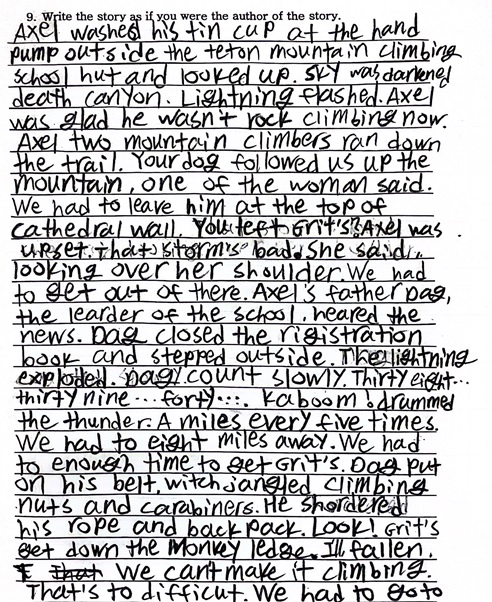 9. Write the story as if you were the author of the story.
Axel washed his tin cup at the hand
pump outside the teton mountain climbing
school hut and looked up. Sky was darkened
death canyon. Lightning flashed. Axel
was glad he wasn't rock climbing now.
Axel two mountain climbers ran down
the trail. Your dog followed us up the
mountain, one of the woman said.
We had to leave him at the top of
cathedral wall. You left Grit's? Axel was
upset. That storm's bad. She said,
looking over her shoulder. We had
to get out of there. Axel's father Dag,
the learder of the school, heared the
news. Dag closed the rigistration
book and stepped outside. The lightning
exploded. Dag count slowly. Thirty eight...
thirty nine... forty.... Kaboom! drummed
the thunder. A miles every five times.
We had to eight miles away. We had
to enough time to get Grit's. Dag put
on his belt, witch jangled climbing
nuts and carabiners. He shordered
his rope and back pack. Look! Grit's
get down the Monkey ledge. Ill fallen.
We can't make it climbing.
That's to difficut. We had to go to